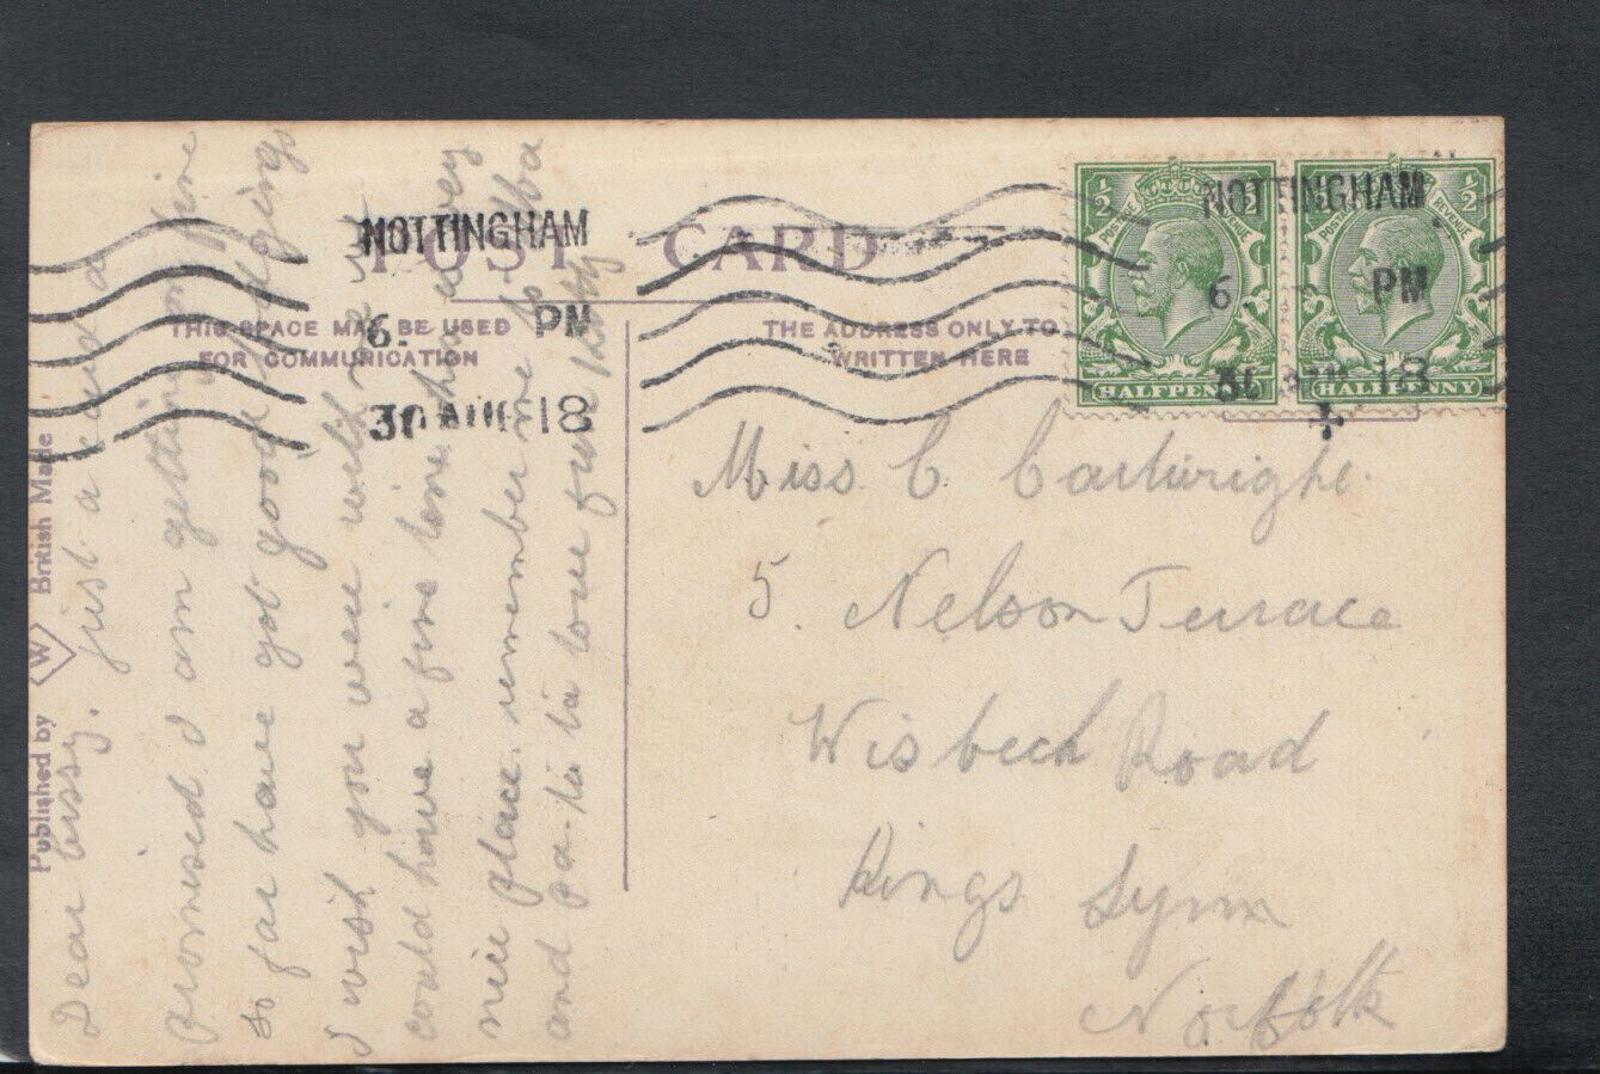 POST CARD
THIS SPACE MAY BE USED
FOR COMMUNICATION
THE ADDRESS ONLY TO
WRITTEN HERE
NOTTINGHAM
6. PM
30 AUG 18
NOTTINGHAM
6. PM
18
½ ½
POSTAGE REVENUE
HALFPENNY
½ ½
POSTAGE REVENUE
HALFPENNY
Published by W British Made
Dear Cissy. just a card as
promised I am getting on fine
so far have got good lodgings
I wish you were with me u
could have a fine time. his a very
nice place. remember me to
and pa-ta ta love from
Miss C. Cartwright.
5. Nelson Terrace
Wisbech Road
Kings Lynn
Norfolk